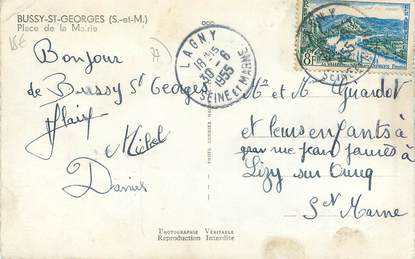 BUSSY-ST-GEORGES (S.-et-M.)
Place de la Mairie
15€
Bonjour
de Bussy St Georges
Michel
Daniel
LAGNY
18H15
30-6
1955
SEINE ET MARNE
8F
Mr et Mme Guardot
et leurs enfants à
gran rue jean jaurès à
Lizy sur Ourcq
S et Marne
PHOTOGRAPHIE VÉRITABLE
Reproduction Interdite